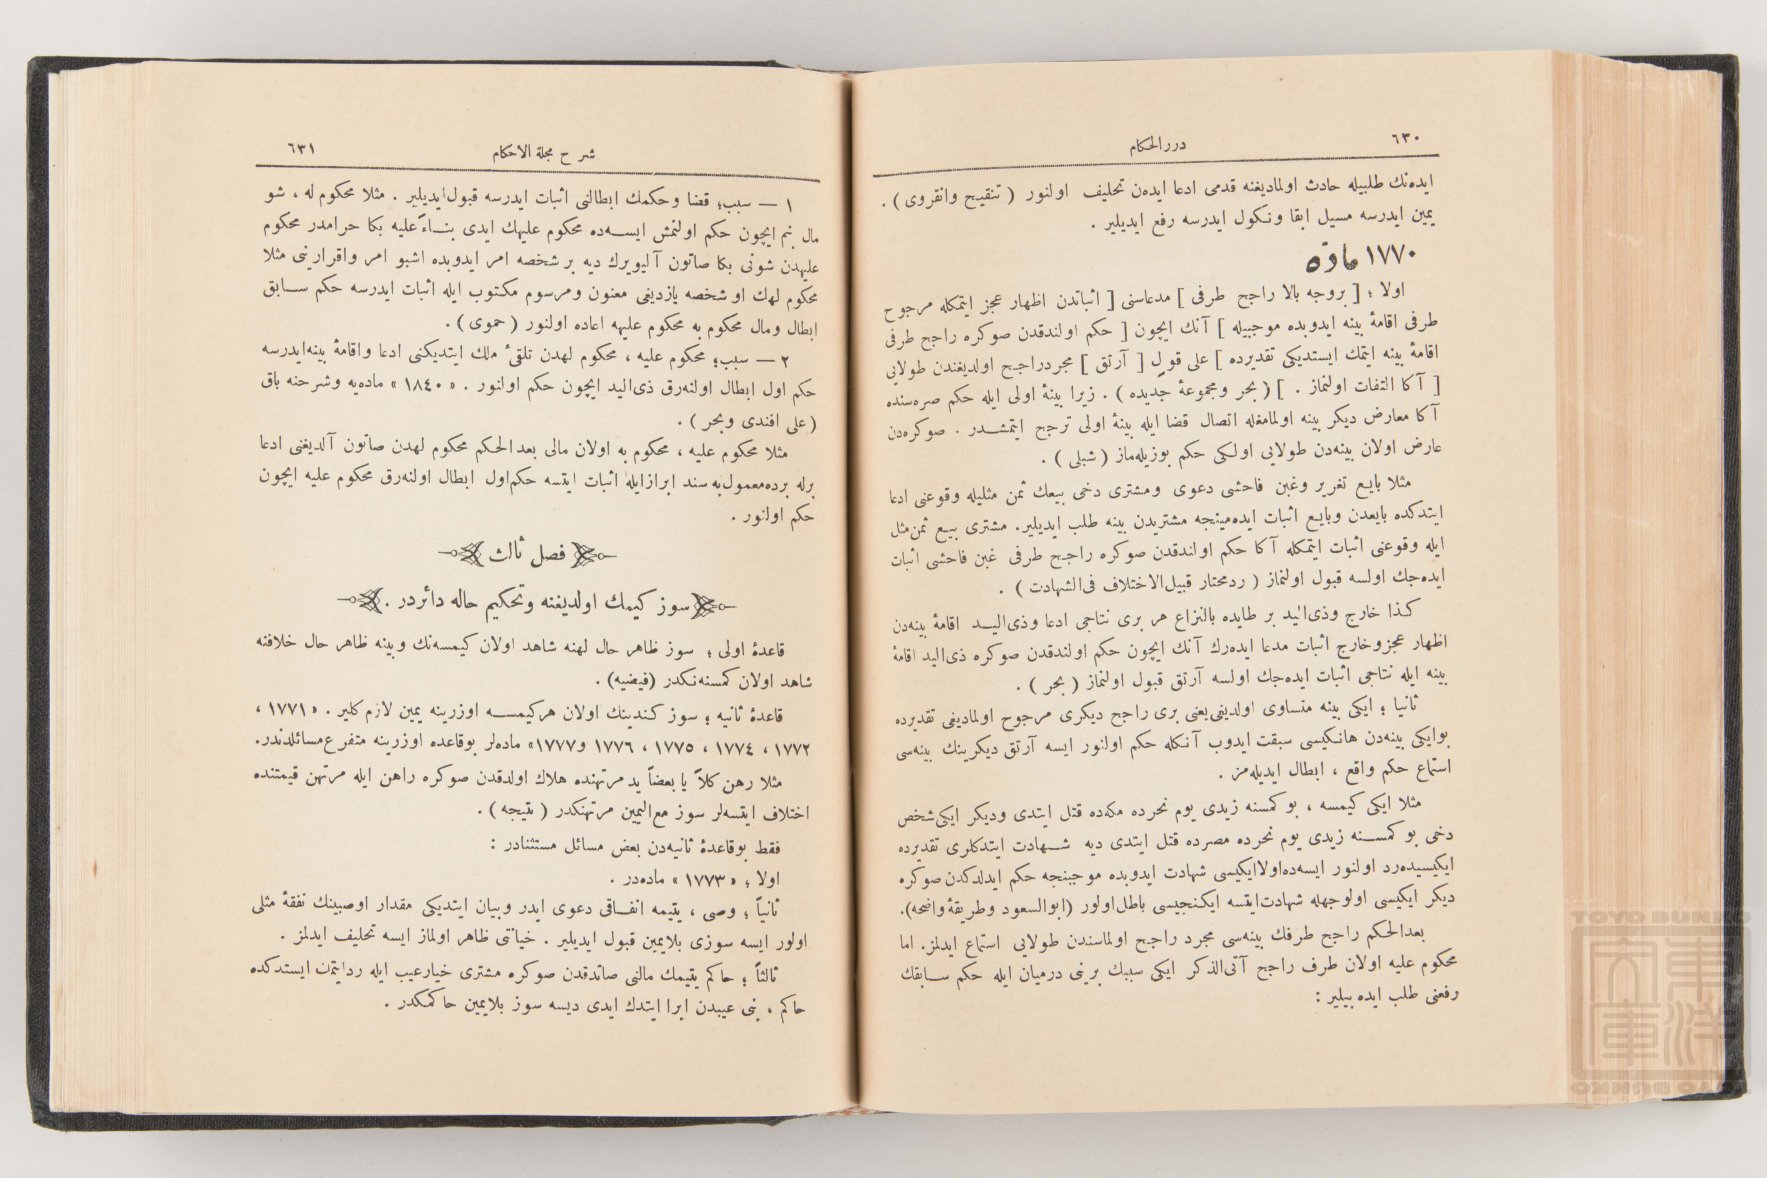 ٦٣٠
دررالحكام
ايده‌نك طلبيله حادث اولماديغنه قدمى ادعا ايده‌ن تحليف اولنور ( تنقيح وانقروى ) .
يمين ايدرسه مسيل ابقا ونكول ايدرسه رفع ايديلير .
١٧٧٠ مادّه
اولا ؛ [ بروجه بالا راجح طرفى ] مدعاسنى [ اثباتدن اظهار عجز ايتمكله مرجوح
طرفى اقامۀ بينه ايدوبده موجبيله ] آنك ايچون [ حكم اولندقدن صوكره راجح طرفى
اقامۀ بينه ايتمك ايستديكى تقديرده ] على قول [ آرتق ] مجرد راجح اولديغندن طولايى
[ آكا التفات اولنماز . ] ( بحر ومجموعۀ جديده ) . زيرا بينۀ اولى ايله حكم صره‌سنده
آكا معارض ديكر بينه اولمامغله اتصال قضا ايله بينۀ اولى ترجح ايتمشدر . صوكره‌دن
عارض اولان بينه‌دن طولايى اولكى حكم بوزيله‌ماز ( شبلى ) .
مثلا بايع تغرير وغبن فاحشى دعوى ومشترى دخى بيعك ثمن مثليله وقوعنى ادعا
ايتدكده بايعدن وبايع اثبات ايده‌مينجه مشتريدن بينه طلب ايديلير. مشترى بيع ثمن‌مثل
ايله وقوعنى اثبات ايتمكله آكا حكم اولندقدن صوكره راجح طرفى غبن فاحشى اثبات
ايده‌جك اولسه قبول اولنماز ( ردمختار قبيل‌الاختلاف فى‌الشهادت ) .
كذا خارج وذى‌اليد بر طايده بالنزاع هر برى نتاجى ادعا وذى‌اليد اقامۀ بينه‌دن
اظهار عجزوخارج اثبات مدعا ايده‌رك آنك ايچون حكم اولندقدن صوكره ذى‌اليد اقامۀ
بينه ايله نتاجى اثبات ايده‌جك اولسه آرتق قبول اولنماز ( بحر ) .
ثانيا ؛ ايكى بينه متساوى اولديغى‌يعنى برى راجح ديكرى مرجوح اولماديغى تقديرده
بوايكى بينه‌دن هانكيسى سبقت ايدوب آنكله حكم اولنور ايسه آرتق ديكرينك بينه‌سى
استماع حكم واقع ، ابطال ايديله‌مز .
مثلا ايكى كيمسه ، بو كمسنه زيدى يوم نحرده مكه‌ده قتل ايتدى وديكر ايكى‌شخص
دخى بو كمسنه زيدى يوم نحرده مصرده قتل ايتدى ديه شهادت ايتدكلرى تقديرده
ايكيسيده‌رد اولنور ايسه‌ده‌اولاايكيسى شهادت ايدوبده موجبنجه حكم ايدلدكدن صوكره
ديكر ايكيسى اولوجهله شهادت‌ايتسه ايكنجيسى باطل‌اولور (ابوالسعود وطريقۀواضحه).
بعدالحكم راجح طرفك بينه‌سى مجرد راجح اولماسندن طولايى استماع ايدلمز. اما
محكوم عليه اولان طرف راجح آتى‌الذكر ايكى سببك برينى درميان ايله حكم سابقك
رفعنى طلب ايده بيلير :
٦٣١
شرح مجلة الاحكام
١ — سبب؛ قضا وحكمك ابطالنى اثبات ايدرسه قبول‌ايديلير . مثلا محكوم له ، شو
مال بنم ايچون حكم اولنمش ايسه‌ده محكوم عليهك ايدى بناءً عليه بكا حرامدر محكوم
عليهدن شونى بكا صاتون آليويرك ديه بر شخصه امر ايدوبده اشبو امر واقرارينى مثلا
محكوم لهك او شخصه يازديغى معنون ومرسوم مكتوب ايله اثبات ايدرسه حكم سابق
ابطال ومال محكوم به محكوم عليهه اعاده اولنور ( حموى ) .
٢ — سبب؛ محكوم عليه ، محكوم لهدن تلقىٔ ملك ايتديكنى ادعا واقامۀ بينه‌ايدرسه
حكم اول ابطال اولنه‌رق ذى‌اليد ايچون حكم اولنور . «١٨٤٠» ماده‌يه وشرحنه باق
( على افندى وبحر ) .
مثلا محكوم عليه ، محكوم به اولان مالى بعدالحكم محكوم لهدن صاتون آلديغنى ادعا
برله برده‌معمول‌به سند ابرازايله اثبات ايتسه حكم‌اول ابطال اولنه‌رق محكوم عليه ايچون
حكم اولنور .
فصل ثالث
سوز كيمك اولديغنه وتحكيم حاله دائردر .
قاعدۀ اولى ؛ سوز ظاهر حال لهنه شاهد اولان كيمسه‌نك وبينه ظاهر حال خلافنه
شاهد اولان كمسنه‌نكدر (فيضيه) .
قاعدۀ ثانيه ؛ سوز كندينك اولان هركيمسه اوزرينه يمين لازم‌كلير . «١٧٧١ ،
١٧٧٢ ، ١٧٧٤ ، ١٧٧٥ ، ١٧٧٦ و١٧٧٧» ماده‌لر بوقاعده اوزرينه متفرع‌مسائلدندر.
مثلا رهن كلاً يا بعضاً يد مرتهنده هلاك اولدقدن صوكره راهن ايله مرتهن قيمتنده
اختلاف ايتسه‌لر سوز مع‌اليمين مرتهنكدر ( نتيجه ) .
فقط بوقاعدۀ ثانيه‌دن بعض مسائل مستثنادر :
اولا ؛ «١٧٧٣» ماده‌در .
ثانياً ؛ وصى ، يتيمه انفاقى دعوى ايدر وبيان ايتديكى مقدار اوصبينك نفقۀ مثلى
اولور ايسه سوزى بلايمين قبول ايديلير . خيانتى ظاهر اولماز ايسه تحليف ايدلمز .
ثالثاً ؛ حاكم يتيمك مالنى صاتدقدن صوكره مشترى خيارعيب ايله ردايتمك ايستدكده
حاكم ، بنى عيبدن ابرا ايتدك ايدى ديسه سوز بلايمين حاكمكدر .
TOYO BUNKO
東洋文庫
TOYO BUNKO